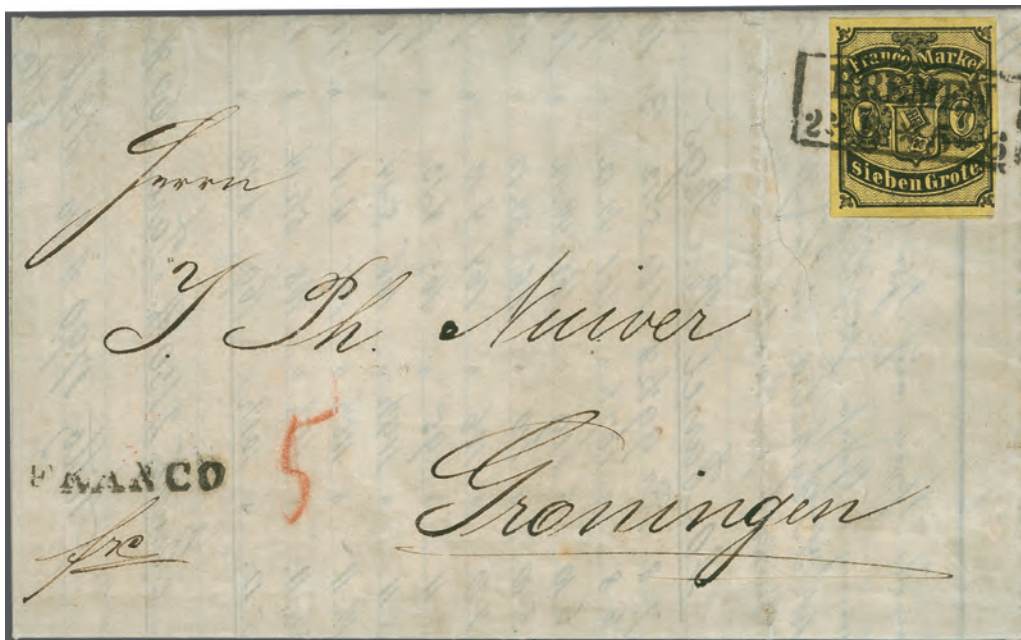 Franco Marke
BREMEN
7 7
Sieben Grote.
Herrn
J. Ph. Nuiver
5
FRANCO
frc
Groningen